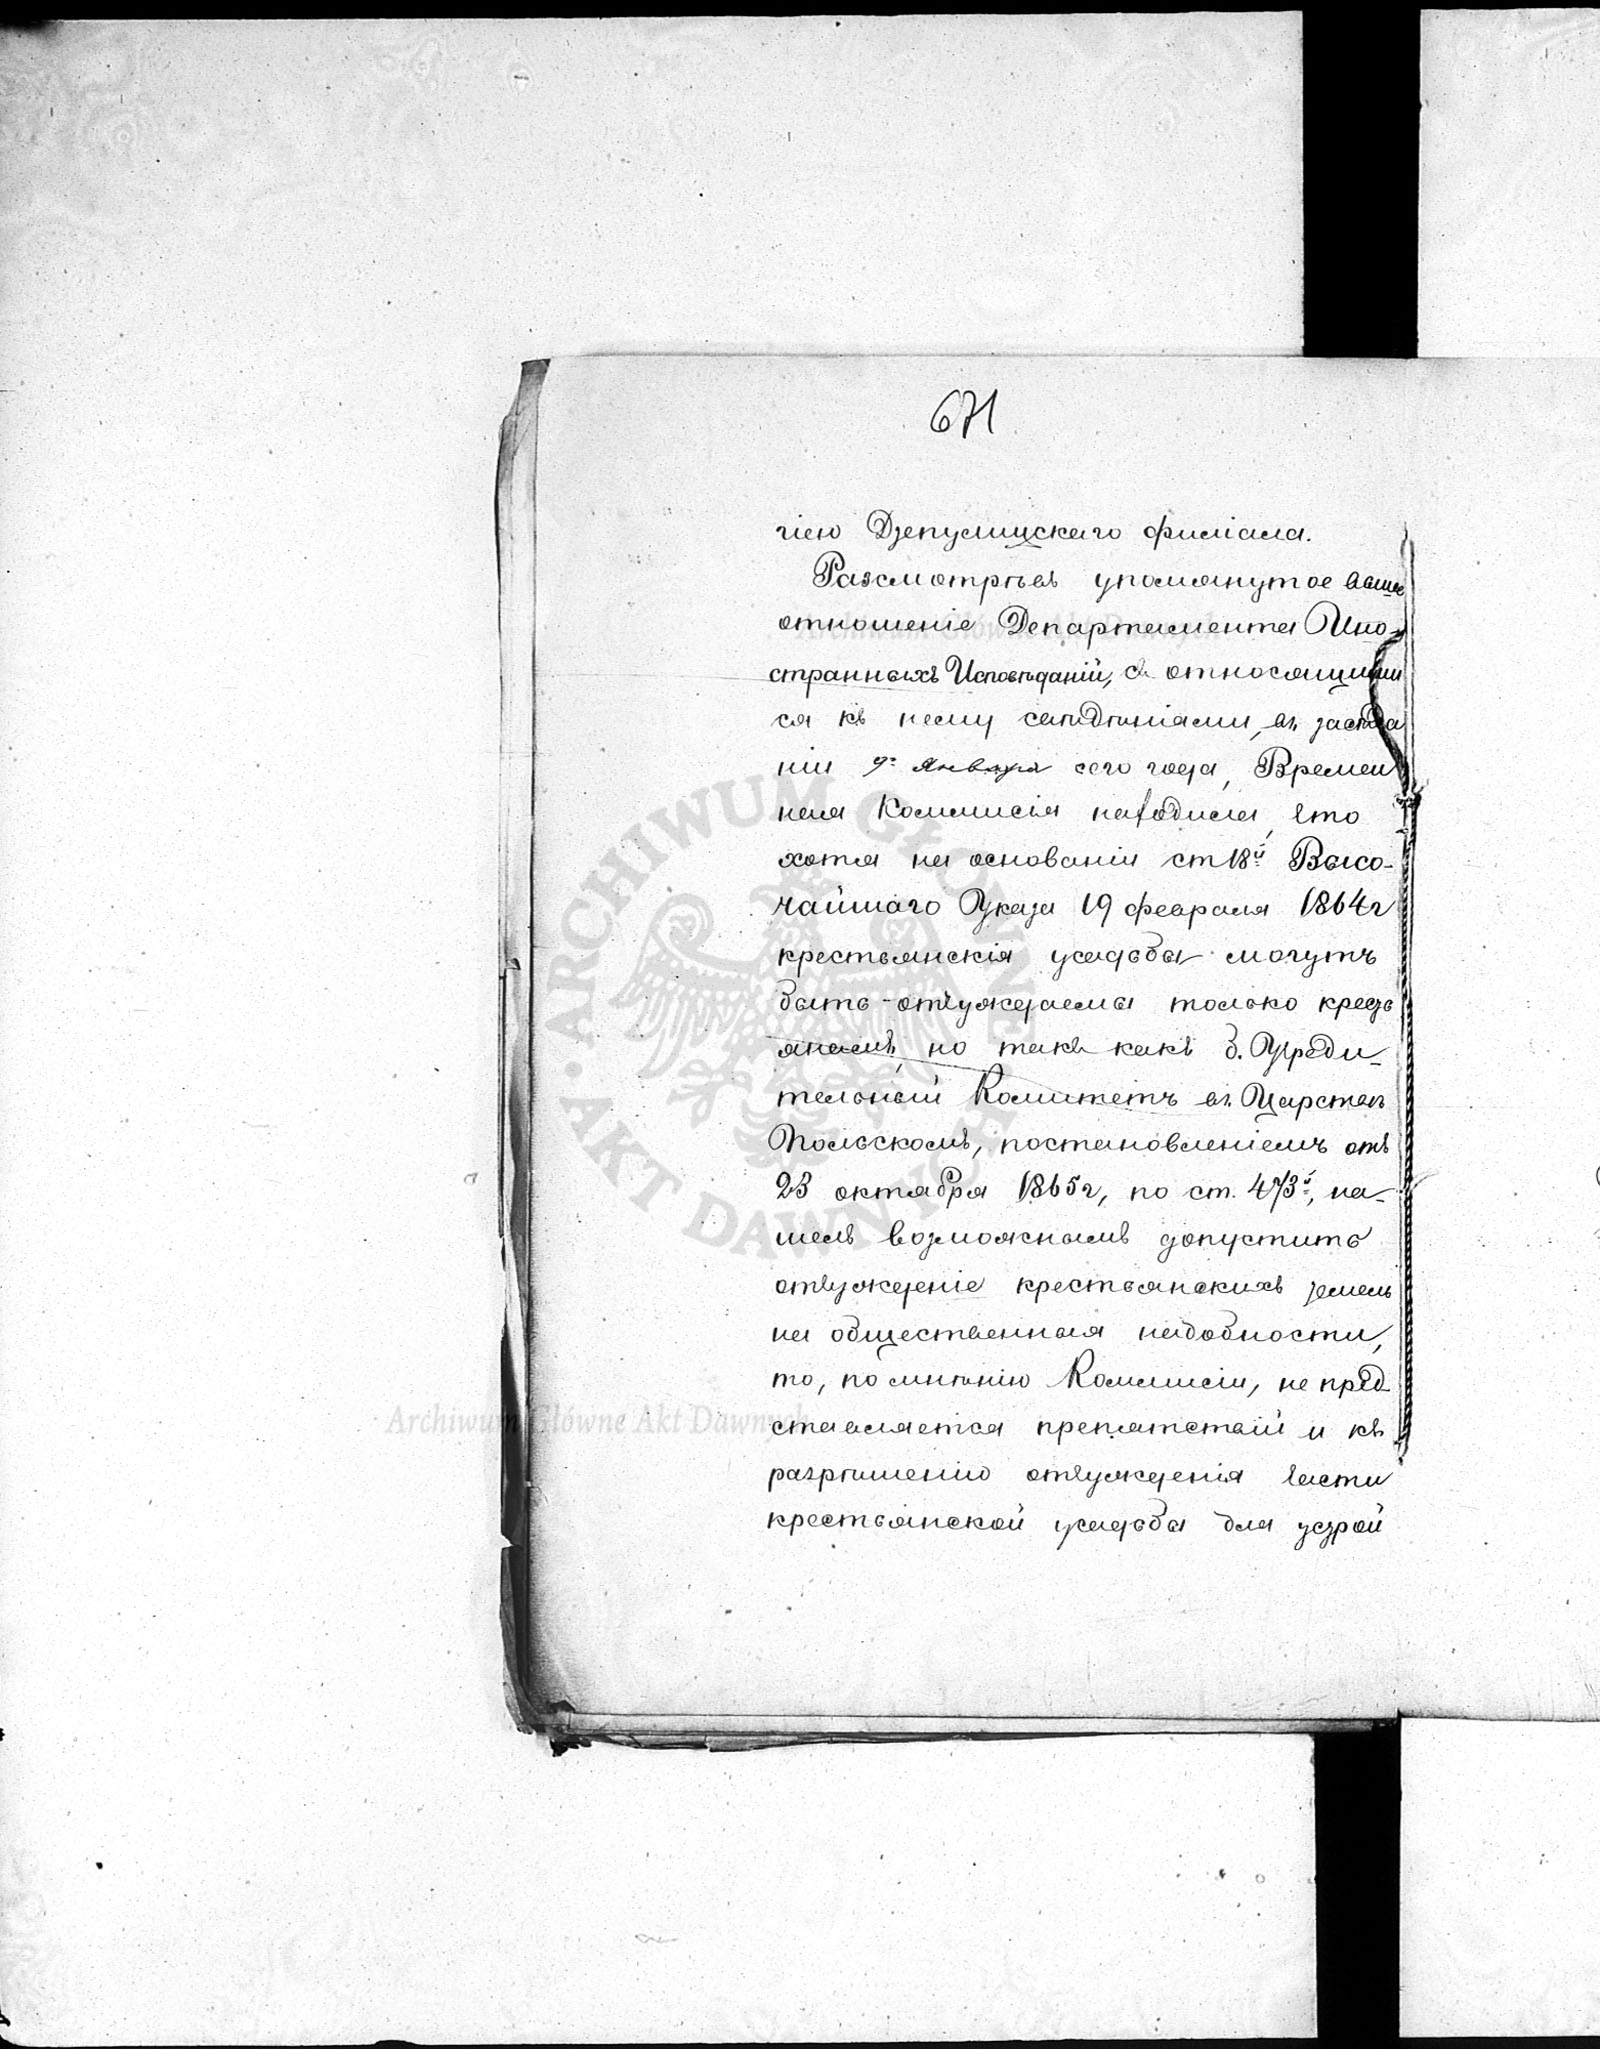 671
гіею Дзепулицскаго филіала.
Разсмотрѣвъ упомянутое выше
отношеніе Департамента Ино-
странныхъ Исповѣданій, съ относящими
ся къ нему свѣдѣніями, въ засѣда
ніи 9го Января сего года, Времен
ная Коммисія находила, что
хотя на основаніи ст 18й Высо-
чайшаго Указа 19 февраля 1864 г
крестьянскія усадьбы могутъ
быть отчуждаемы только кресть
янамъ, но такъ какъ б. Учреди-
тельный Комитетъ въ Царствѣ
Польскомъ, постановленіемъ отъ
23 октября 1865 г, по ст. 473й, на-
шелъ возможнымъ допустить
отчужденіе крестьянскихъ земель
на общественныя надобности,
то, по мнѣнію Коммисіи, не пред-
ставляется препятствій и къ
разрѣшенію отчужденія части
крестьянской усадьбы для устрой
ARCHIWUM GŁÓWNE
AKT DAWNYCH
Archiwum Główne Akt Dawnych